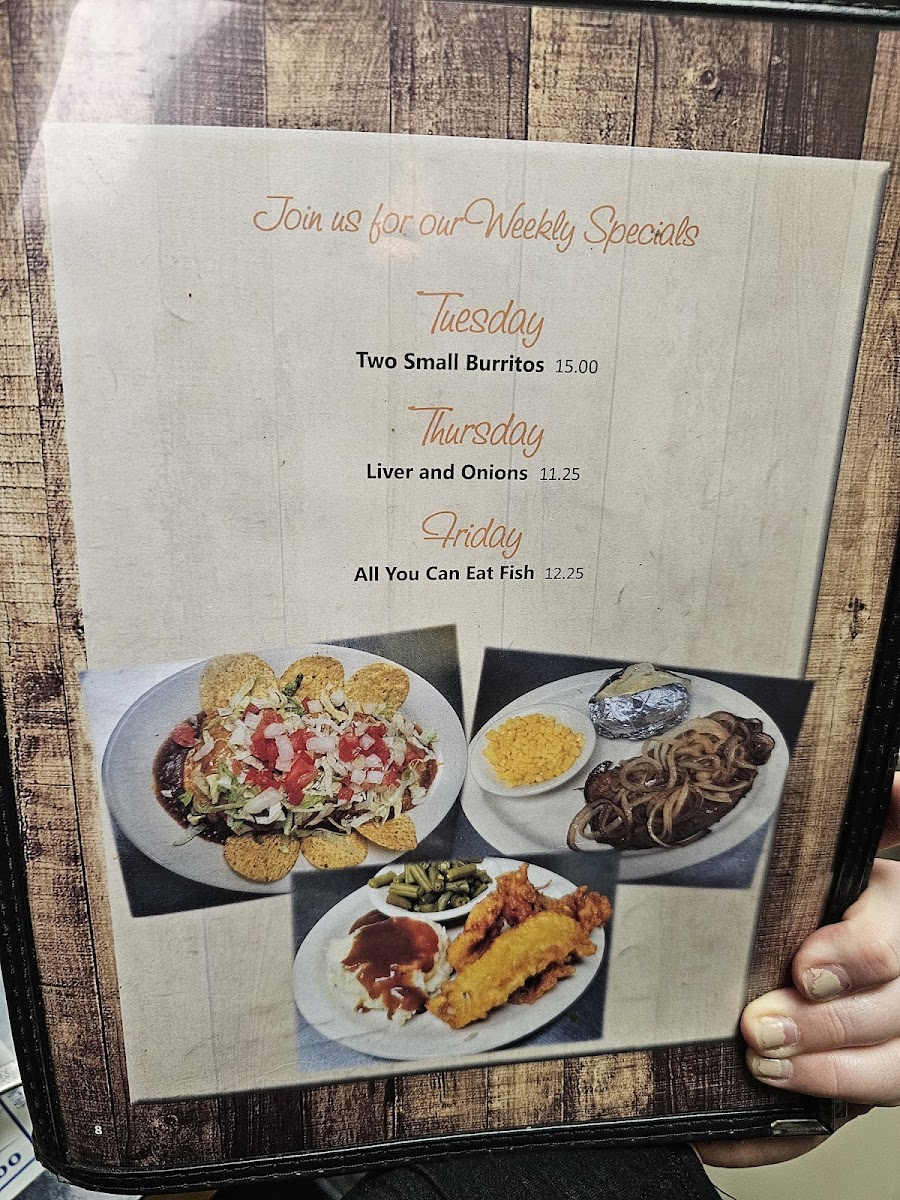 Join us for our Weekly Specials
Tuesday
Two Small Burritos 15.00
Thursday
Liver and Onions 11.25
Friday
All You Can Eat Fish 12.25
8